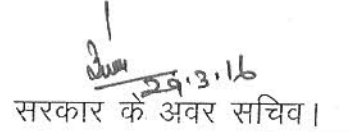 29.3.16
सरकार के अवर सचिव।